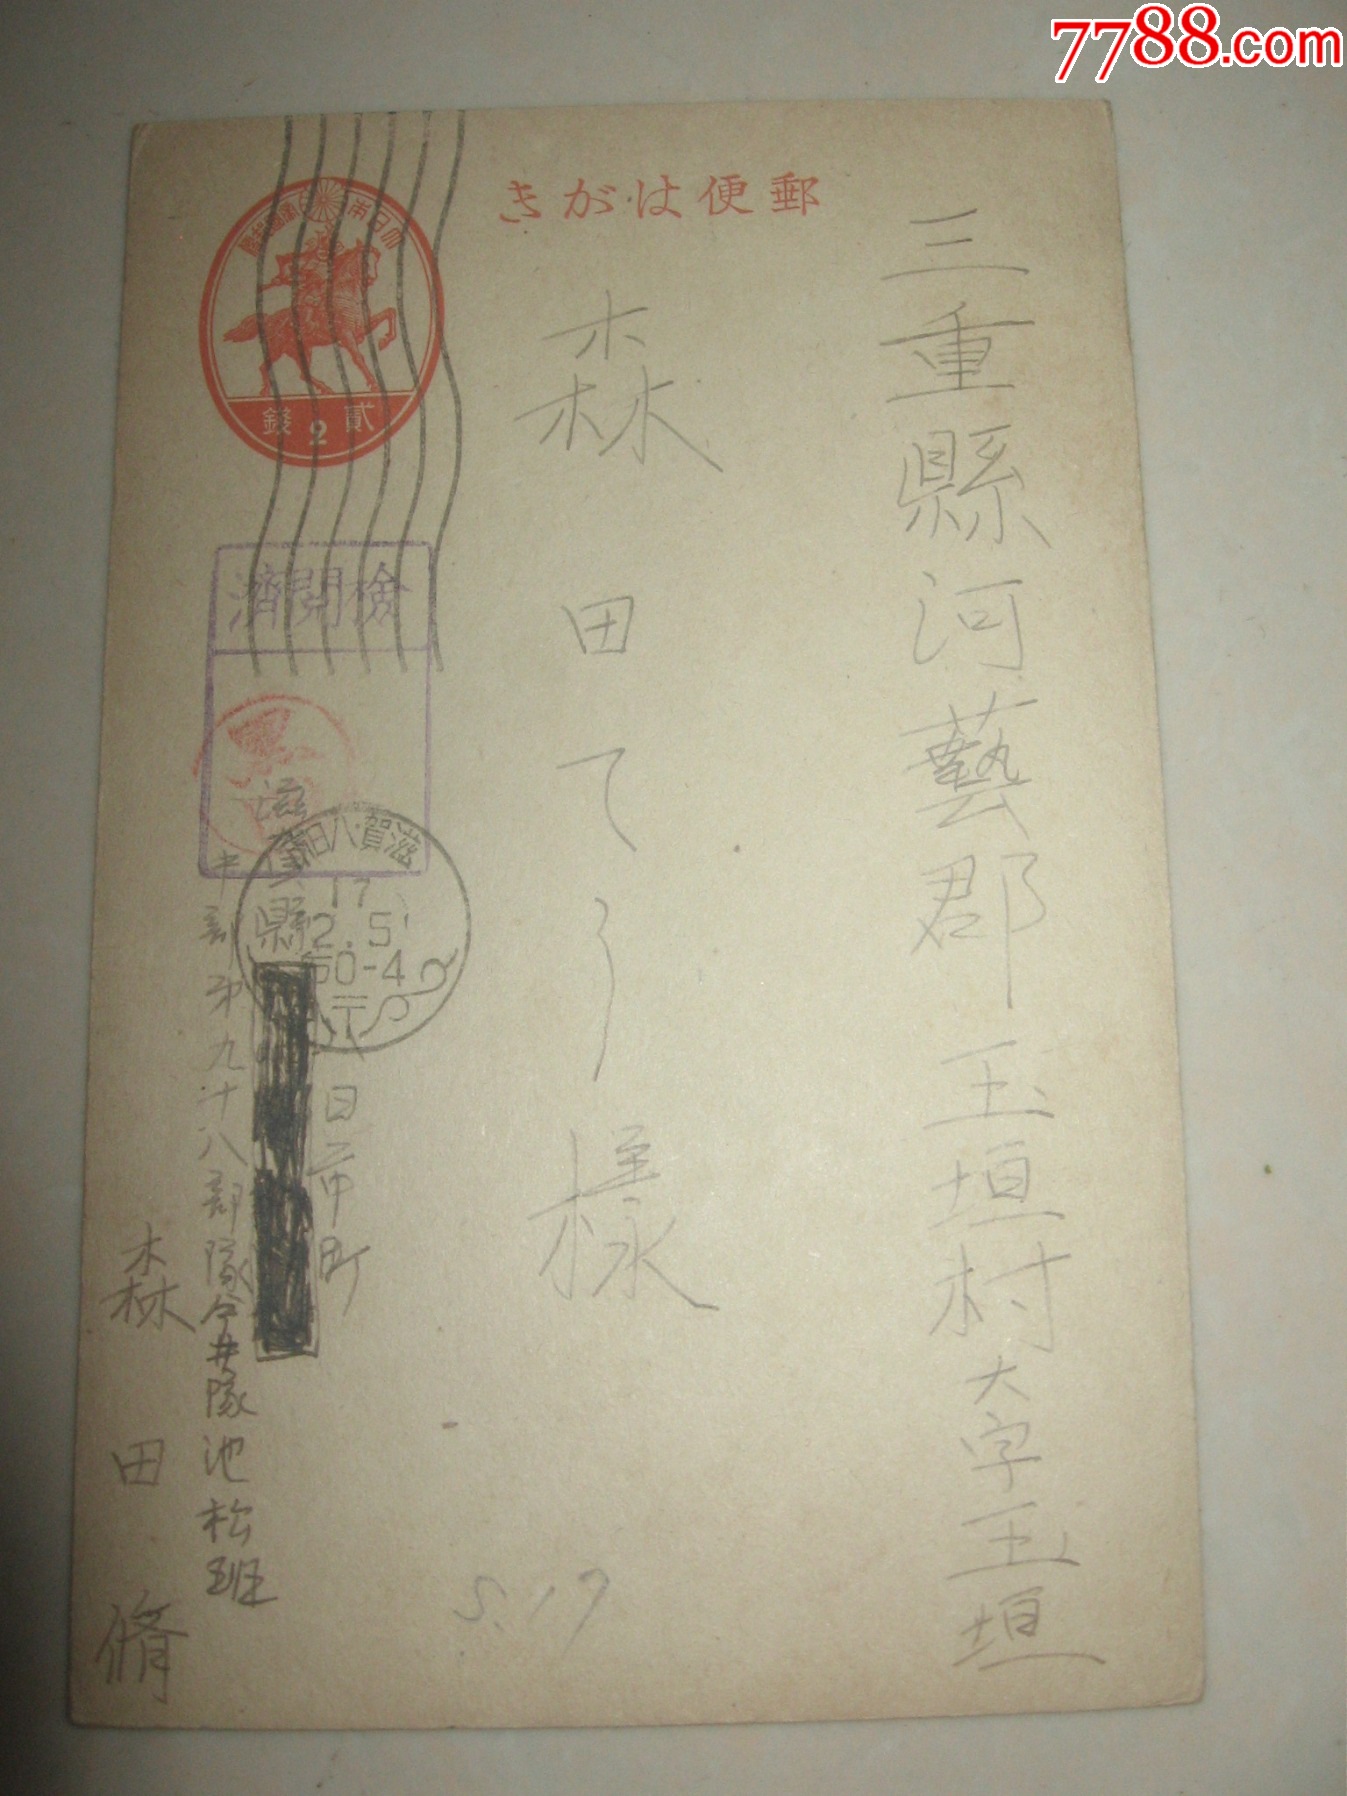 7788.com
郵便はがき
大日本帝國郵便
貳 2 錢
三重縣河藝郡玉垣村大字玉垣
森田てう様
檢閲濟
滋賀八日
17
2.5
后0-4
滋賀縣
八日市町
中部第九十八部隊今井隊池松班
森田脩
S.17